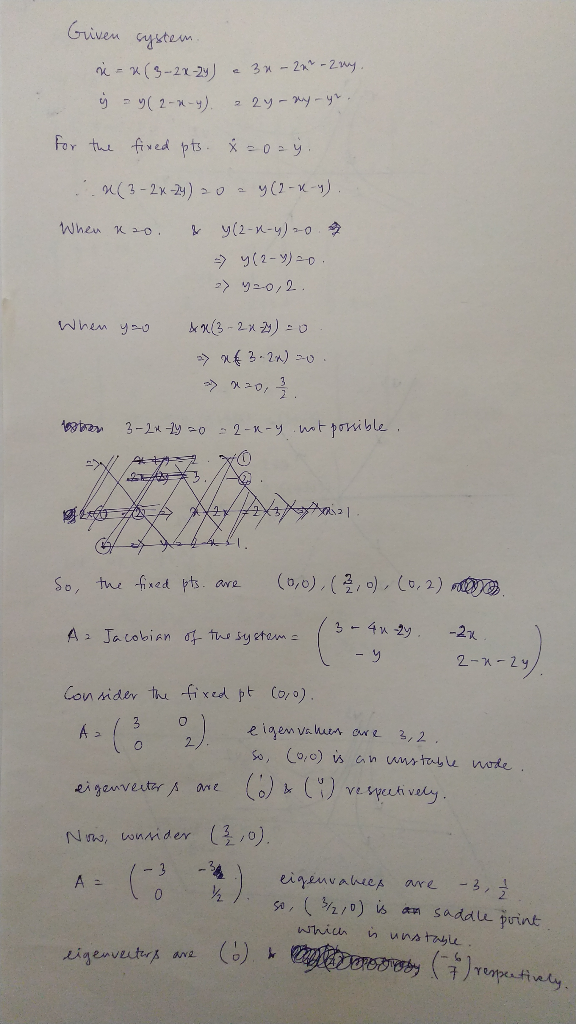 Given system.
ẋ = x(3-2x-2y) = 3x - 2x² - 2xy.
ẏ = y(2-x-y). = 2y - xy - y².
For the fixed pts. ẋ = 0 = ẏ.
∴ x(3-2x-2y) = 0 = y(2-x-y).
When x=0. & y(2-x-y)=0.
⇒ y(2-y)=0.
⇒ y=0,2.
When y=0 & x(3-2x-2y) = 0
⇒ x(3-2x) = 0.
⇒ x=0, 3/2.
3-2x-2y = 0 = 2-x-y not possible.
So, the fixed pts. are (0,0), (3/2,0), (0,2)
A = Jacobian of the system = ( 3-4x-2y. -2x
-y 2-x-2y )
Consider the fixed pt (0,0).
A = ( 3 0
0 2 ). eigenvalues are 3,2.
so, (0,0) is an unstable node.
eigenvectors are (1 0) & (0 1) respectively.
Now, consider (3/2,0).
A = ( -3 -3
0 1/2 ). eigenvalues are -3, 1/2
so, (3/2,0) is saddle point
which is unstable.
eigenvectors are (1 0) & (-6 7) respectively.